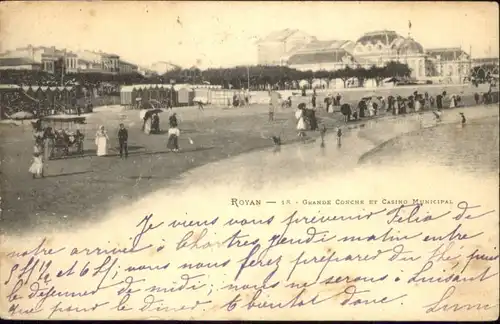 ROYAN — 18 - GRANDE CONCHE ET CASINO MUNICIPAL
Je viens vous prévenir Félia de
notre arrivée à Chartres jeudi matin entre
5h ½ et 6h; vous nous ferez préparer du thé, puis
le déjeuner de midi; nous ne serons à
que pour le dîner à bientôt donc.